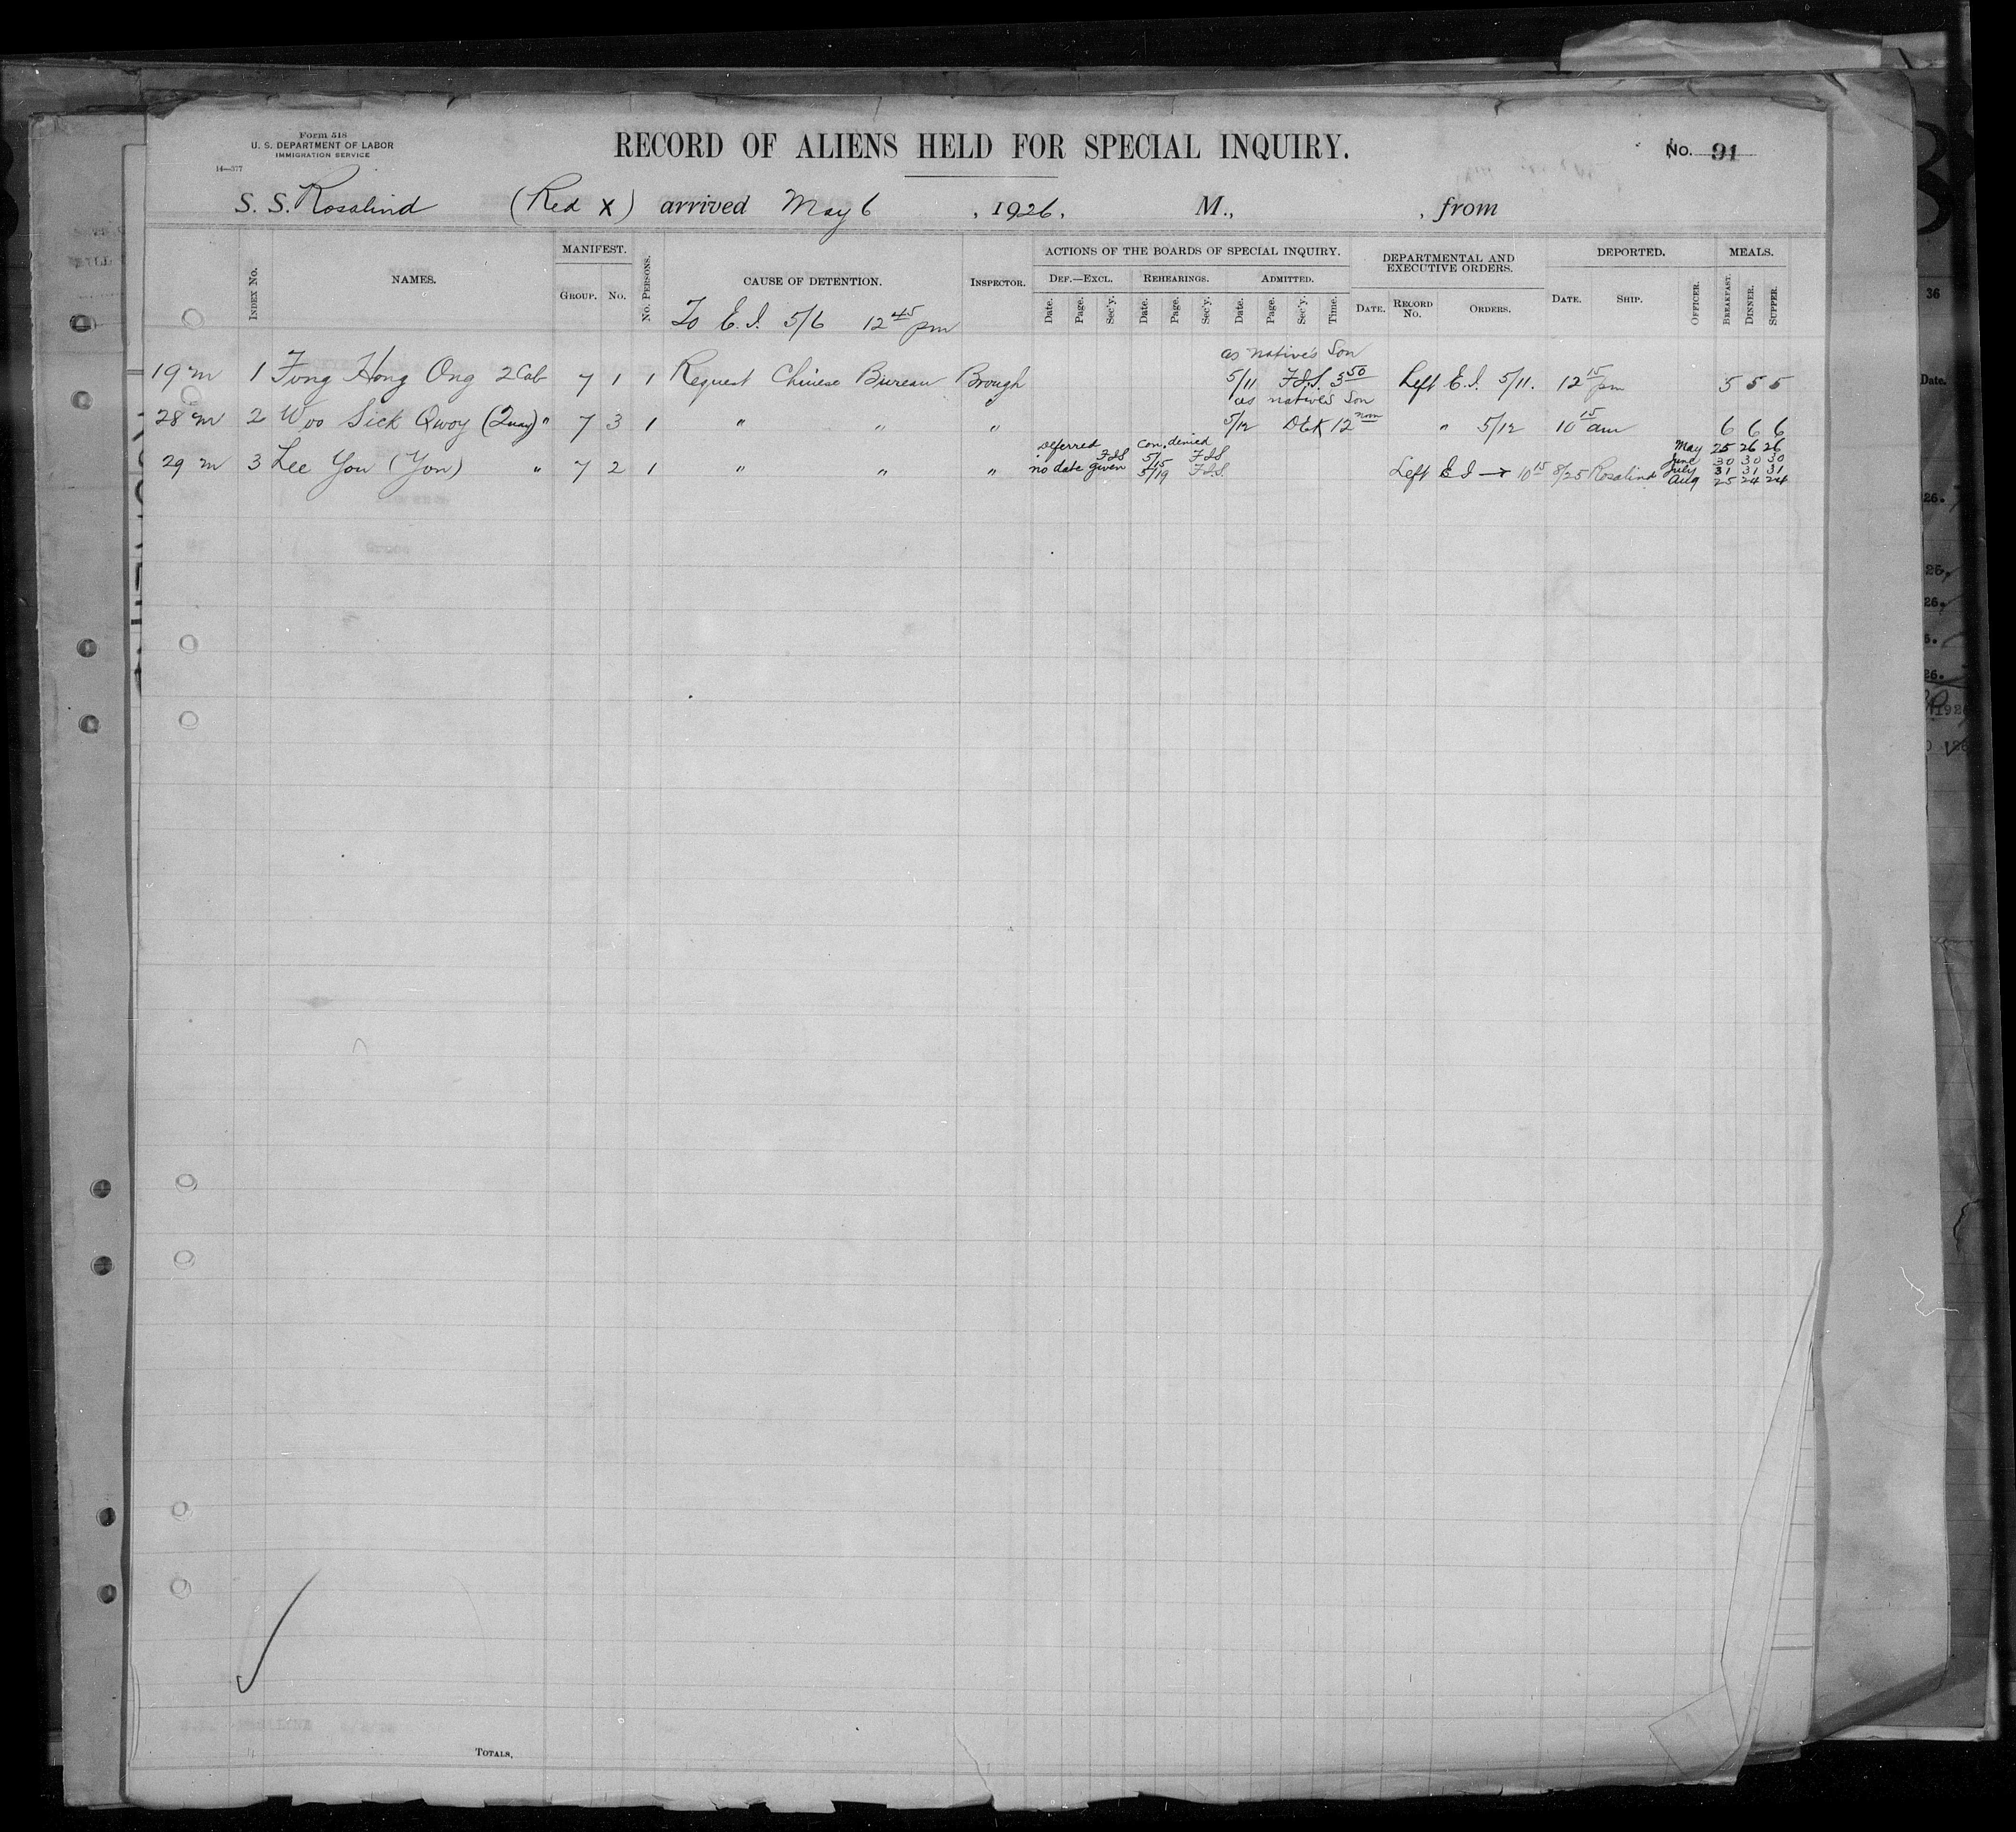 Form 518
U. S. DEPARTMENT OF LABOR
IMMIGRATION SERVICE
14—377
RECORD OF ALIENS HELD FOR SPECIAL INQUIRY.
No. 91
S. S. Rosalind (Red X) arrived May 6, 1926, M., , from
INDEX No. NAMES. MANIFEST. GROUP. No. No. PERSONS. CAUSE OF DETENTION. INSPECTOR. ACTIONS OF THE BOARDS OF SPECIAL INQUIRY. DEPARTMENTAL AND EXECUTIVE ORDERS. DEPORTED. MEALS.
DEF.—EXCL. REHEARINGS. ADMITTED.
Date. Page. Sec'y. Date. Page. Sec'y. Date. Page. Sec'y. Time. DATE. RECORD No. ORDERS. DATE. SHIP. OFFICER. BREAKFAST. DINNER. SUPPER.
To E.I. 5/6 12 45 pm
as native's Son
19 m 1 Fong Hong Ong 2 Cab 7 1 1 Request Chinese Bureau Brough 5/11 F.J.S. 3 50 Left E.I. 5/11. 12 15 pm 5 5 5
as native's Son
28 m 2 Woo Sick Qwoy (Quay) " 7 3 1 " " " 5/12 DEK 12 noon " 5/12 10 15 am 6 6 6
Deferred FJS Con. denied 5/15 FJS May 25 26 26
29 m 3 Lee You (Yon) " 7 2 1 " " " no date given 5/19 F.J.S. Left E I → 10 15 8/25 Rosalind June 30 30 30
July 31 31 31
Aug 25 24 24
TOTALS.
36
Date.